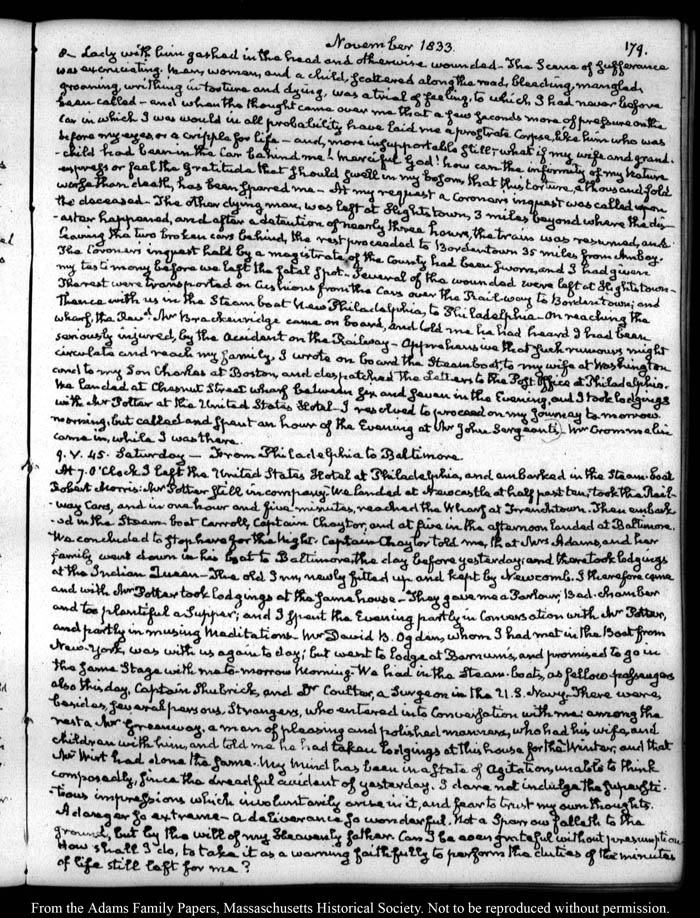 November 1833.
179.
a Lady with him gashed in the head and otherwise wounded – The Scene of sufferance
was excruciating. Men, women, and a child, scattered along the road, bleeding, mangled,
groaning, writhing in torture and dying, was a trial of feeling, to which I had never before
been called – and when the thought came over me that a few seconds more of pressure on the
Car in which I was would in all probability have laid me a prostrate Corpse, like him who was
before my eyes, or a cripple for life – and, more insupportable still, what if my wife and grand-
-child had been in the Car behind me! Merciful God! how can the infirmity of my Nature
express or feel the Gratitude that should swell in my bosom, that this torture, a thousand fold
worse than death, has been spared me – At my request a Coroner's inquest was called upon
the deceased – The other dying man, was left at Hightstown, 3 miles beyond where the dis-
-aster happened, and after a detention of nearly three hours, the train was resumed, and
leaving the two broken cars behind, the rest proceeded to Bordentown 35 miles from Amboy.
The Coroner's inquest held by a magistrate of the County had been sworn, and I had given
my testimony before we left the fatal spot – Several of the wounded were left at Hightstown –
The rest were transported on Cushions from the Cars over the Rail-way to Bordentown; and
thence with us in the Steam boat New Philadelphia, to Philadelphia – On reaching the
wharf, the Revd. Mr Brackenridge came on board, and told me he had heard I had been
seriously injured, by the accident on the Railway – Apprehensive that such rumours might
circulate and reach my family, I wrote on board the Steamboat, to my wife at Washington
and to my Son Charles at Boston, and despatched the Letters to the Post Office at Philadelphia.
We landed at Chesnut Street wharf between six and seven in the Evening, and I took lodgings
with Mr Potter at the United States Hotel – I resolved to proceed on my journey to-morrow
morning, but called and spent an hour of the Evening at Mr John Sergeant's – Mr Crommelin
came in, while I was there.
9. V. 45. Saturday – From Philadelphia to Baltimore
At 7. O'Clock I left the United States Hotel at Philadelphia, and embarked in the Steam-boat
Robert Morris. Mr Potter still in company. We landed at Newcastle at half past ten; took the Rail-
-way Cars, and in one hour and five minutes, reached the Wharf at Frenchtown. Then embark-
-ed in the Steam-boat Carroll, Captain Chaytor, and at five in the afternoon landed at Baltimore.
We concluded to stop here for the Night. Captain Chaytor told me, that Mrs Adams, and her
family went down in his boat to Baltimore, the day before yesterday; and there took lodgings
at the Indian Queen – The old Inn, newly fitted up and kept by Newcomb. I therefore came
and with Mr Potter took lodgings at the same house – They gave me a Parlour, Bed-chamber
and too plentiful a Supper; and I spent the Evening partly in Conversation with Mr Potter,
and partly in musing Meditations – Mr David B. Ogden, whom I had met in the Boat from
New-York, was with us again to day; but went to lodge at Barnum's, and promised to go in
the same Stage with me to-morrow Morning – We had in the Steam-boats, as fellow passengers
also this day, Captain Shubrick, and Dr Coulter, a Surgeon in the U.S. Navy – There were
besides, several persons, Strangers, who entered into Conversation with me: among the
rest a Mr Greenway, a man of pleasing and polished manners, who had his wife, and
children with him, and told me he had taken lodgings at this house for the Winter, and that
Mr Wirt had done the same. My mind has been in a state of agitation, unable to think
composedly, since the dreadful accident of yesterday. I dare not indulge the supersti-
-tious impressions which involuntarily arise in it, and fear to trust my own thoughts.
A danger so extreme – a deliverance so wonderful. Not a Sparrow falleth to the
ground, but by the will of my Heavenly father. Can I be ever grateful without presumption
How shall I do, to take it as a warning faithfully to perform the duties of the minutes
of life still left for me?
From the Adams Family Papers, Massachusetts Historical Society. Not to be reproduced without permission.